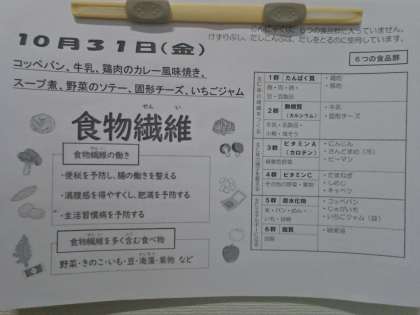 けずりぶし、だしこんぶは、だしをとるのに使用しています。
10月31日(金)
コッペパン、牛乳、鶏肉のカレー風味焼き、
スープ煮、野菜のソテー、固形チーズ、いちごジャム
せん い
食物繊維
食物繊維の働き
・便秘を予防し、腸の働きを整える
・満腹感を得やすくし、肥満を予防する
・生活習慣病を予防する
食物繊維を多く含む食べ物
野菜・きのこ・いも・豆・海藻・果物 など
6つの食品群
1群 たんぱく質
・鶏肉
・豚肉
2群 無機質
(カルシウム)
・牛乳
・固形チーズ
3群 ビタミンA
(カロテン)
緑黄色野菜
・にんじん
・ピーマン
4群 ビタミンC
その他の野菜・果物
・たまねぎ
・しめじ
・キャベツ
5群 炭水化物
・コッペパン
・じゃがいも
・いちごジャム
6群 脂質